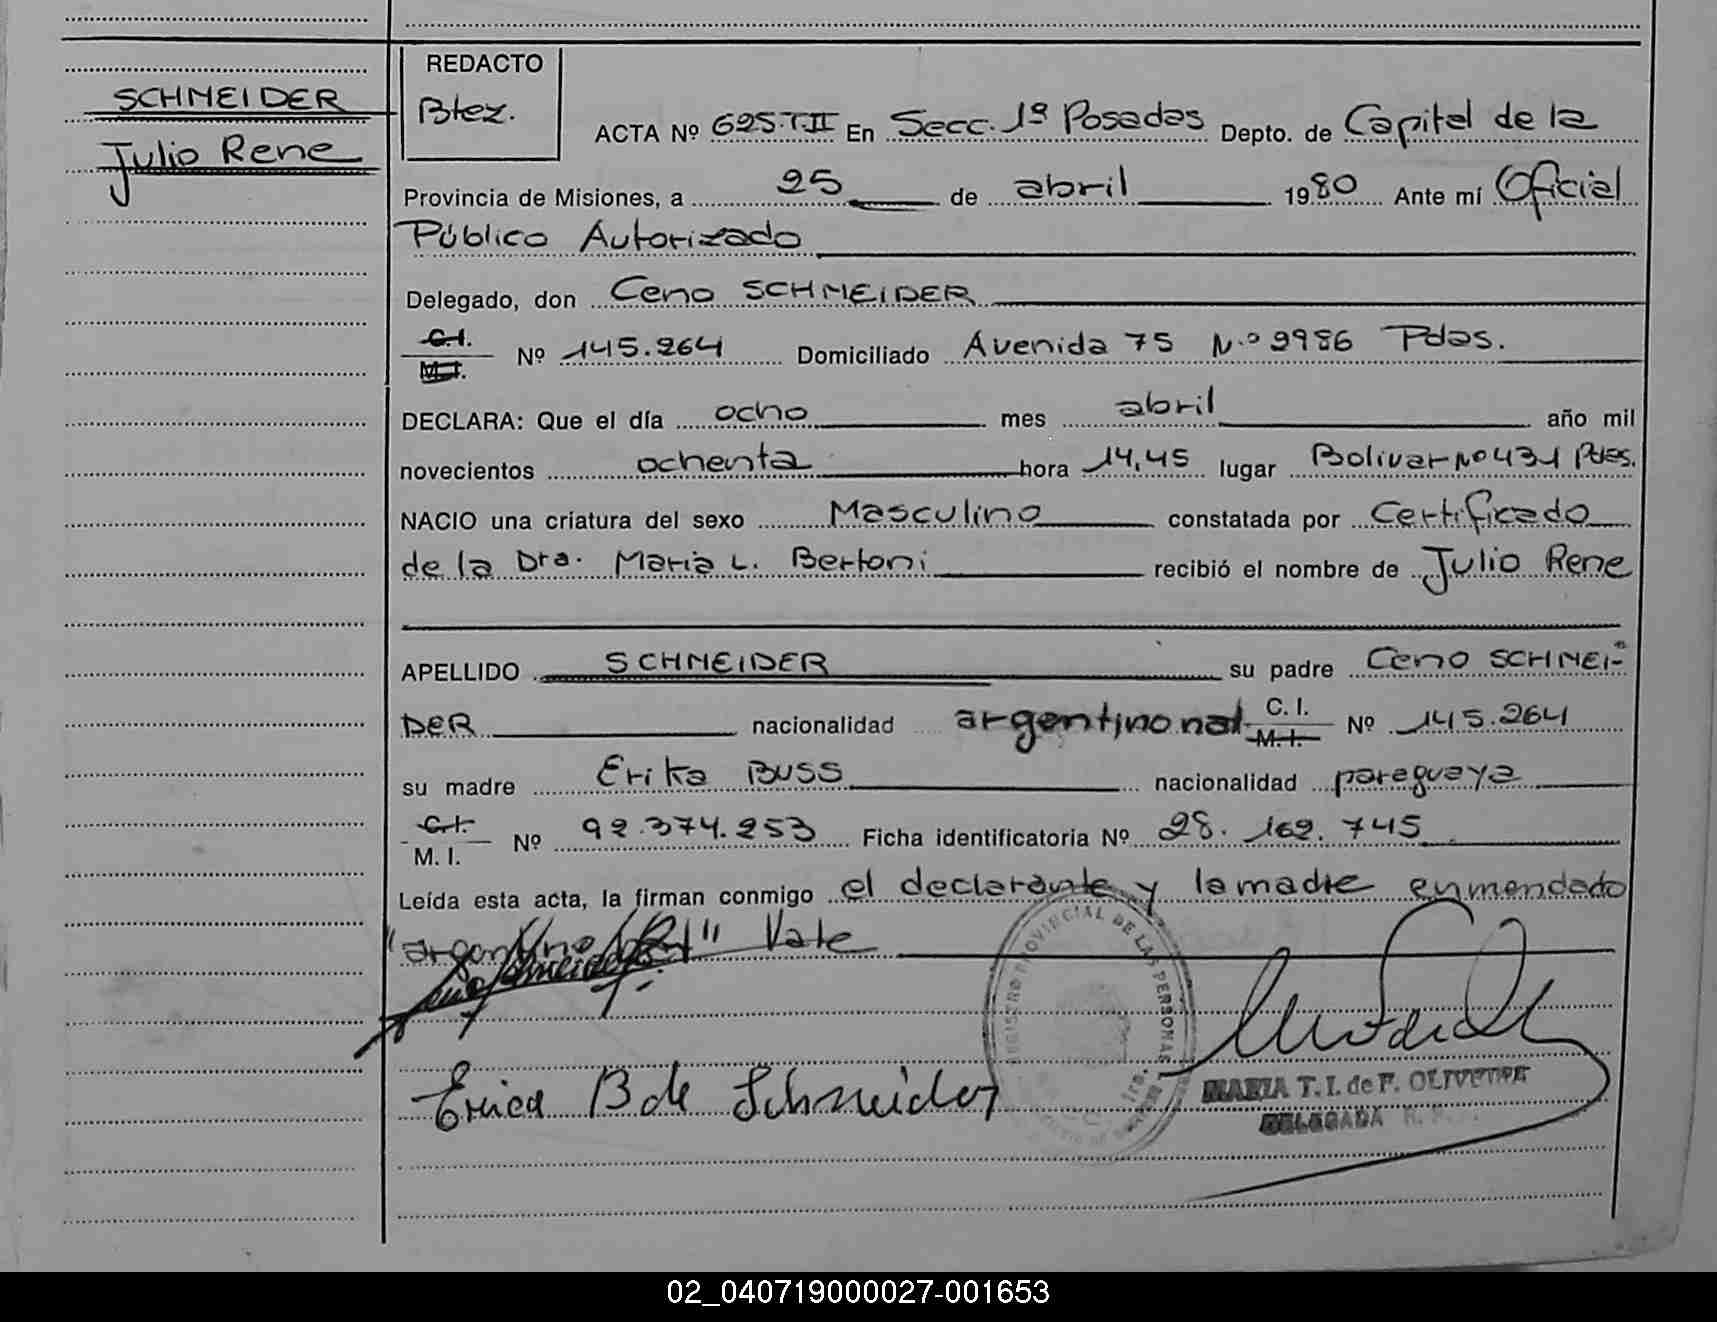 SCHNEIDER
Julio Rene
REDACTO
Btez.
ACTA Nº 625.T.II En Secc. 1ª Posadas Depto. de Capital de la
Provincia de Misiones, a 25 de abril 1980 Ante mí Oficial
Público Autorizado
Delegado, don Ceno SCHNEIDER
C.I.
M.I. Nº 145.264 Domiciliado Avenida 75 N.º 2986 Pdas.
DECLARA: Que el día ocho mes abril año mil
novecientos ochenta hora 14,45 lugar Bolivar Nº 431 Pdas.
NACIO una criatura del sexo Masculino constatada por Certificado
de la Dra. Maria L. Bertoni recibió el nombre de Julio Rene
APELLIDO SCHNEIDER su padre Ceno SCHNEI-
DER nacionalidad argentino nat. C. I.
M. I. Nº 145.264
su madre Erika BUSS nacionalidad paraguaya
C. I.
M. I. Nº 92.374.253 Ficha identificatoria Nº 28. 162. 745
Leída esta acta, la firman conmigo el declarante y la madre enmendado
"argentino nat" Vale
REGISTRO PROVINCIAL DE LAS PERSONAS
Erica B de Schneider
MARIA T. I. de F.
DELEGADA R. P.
02_040719000027-001653